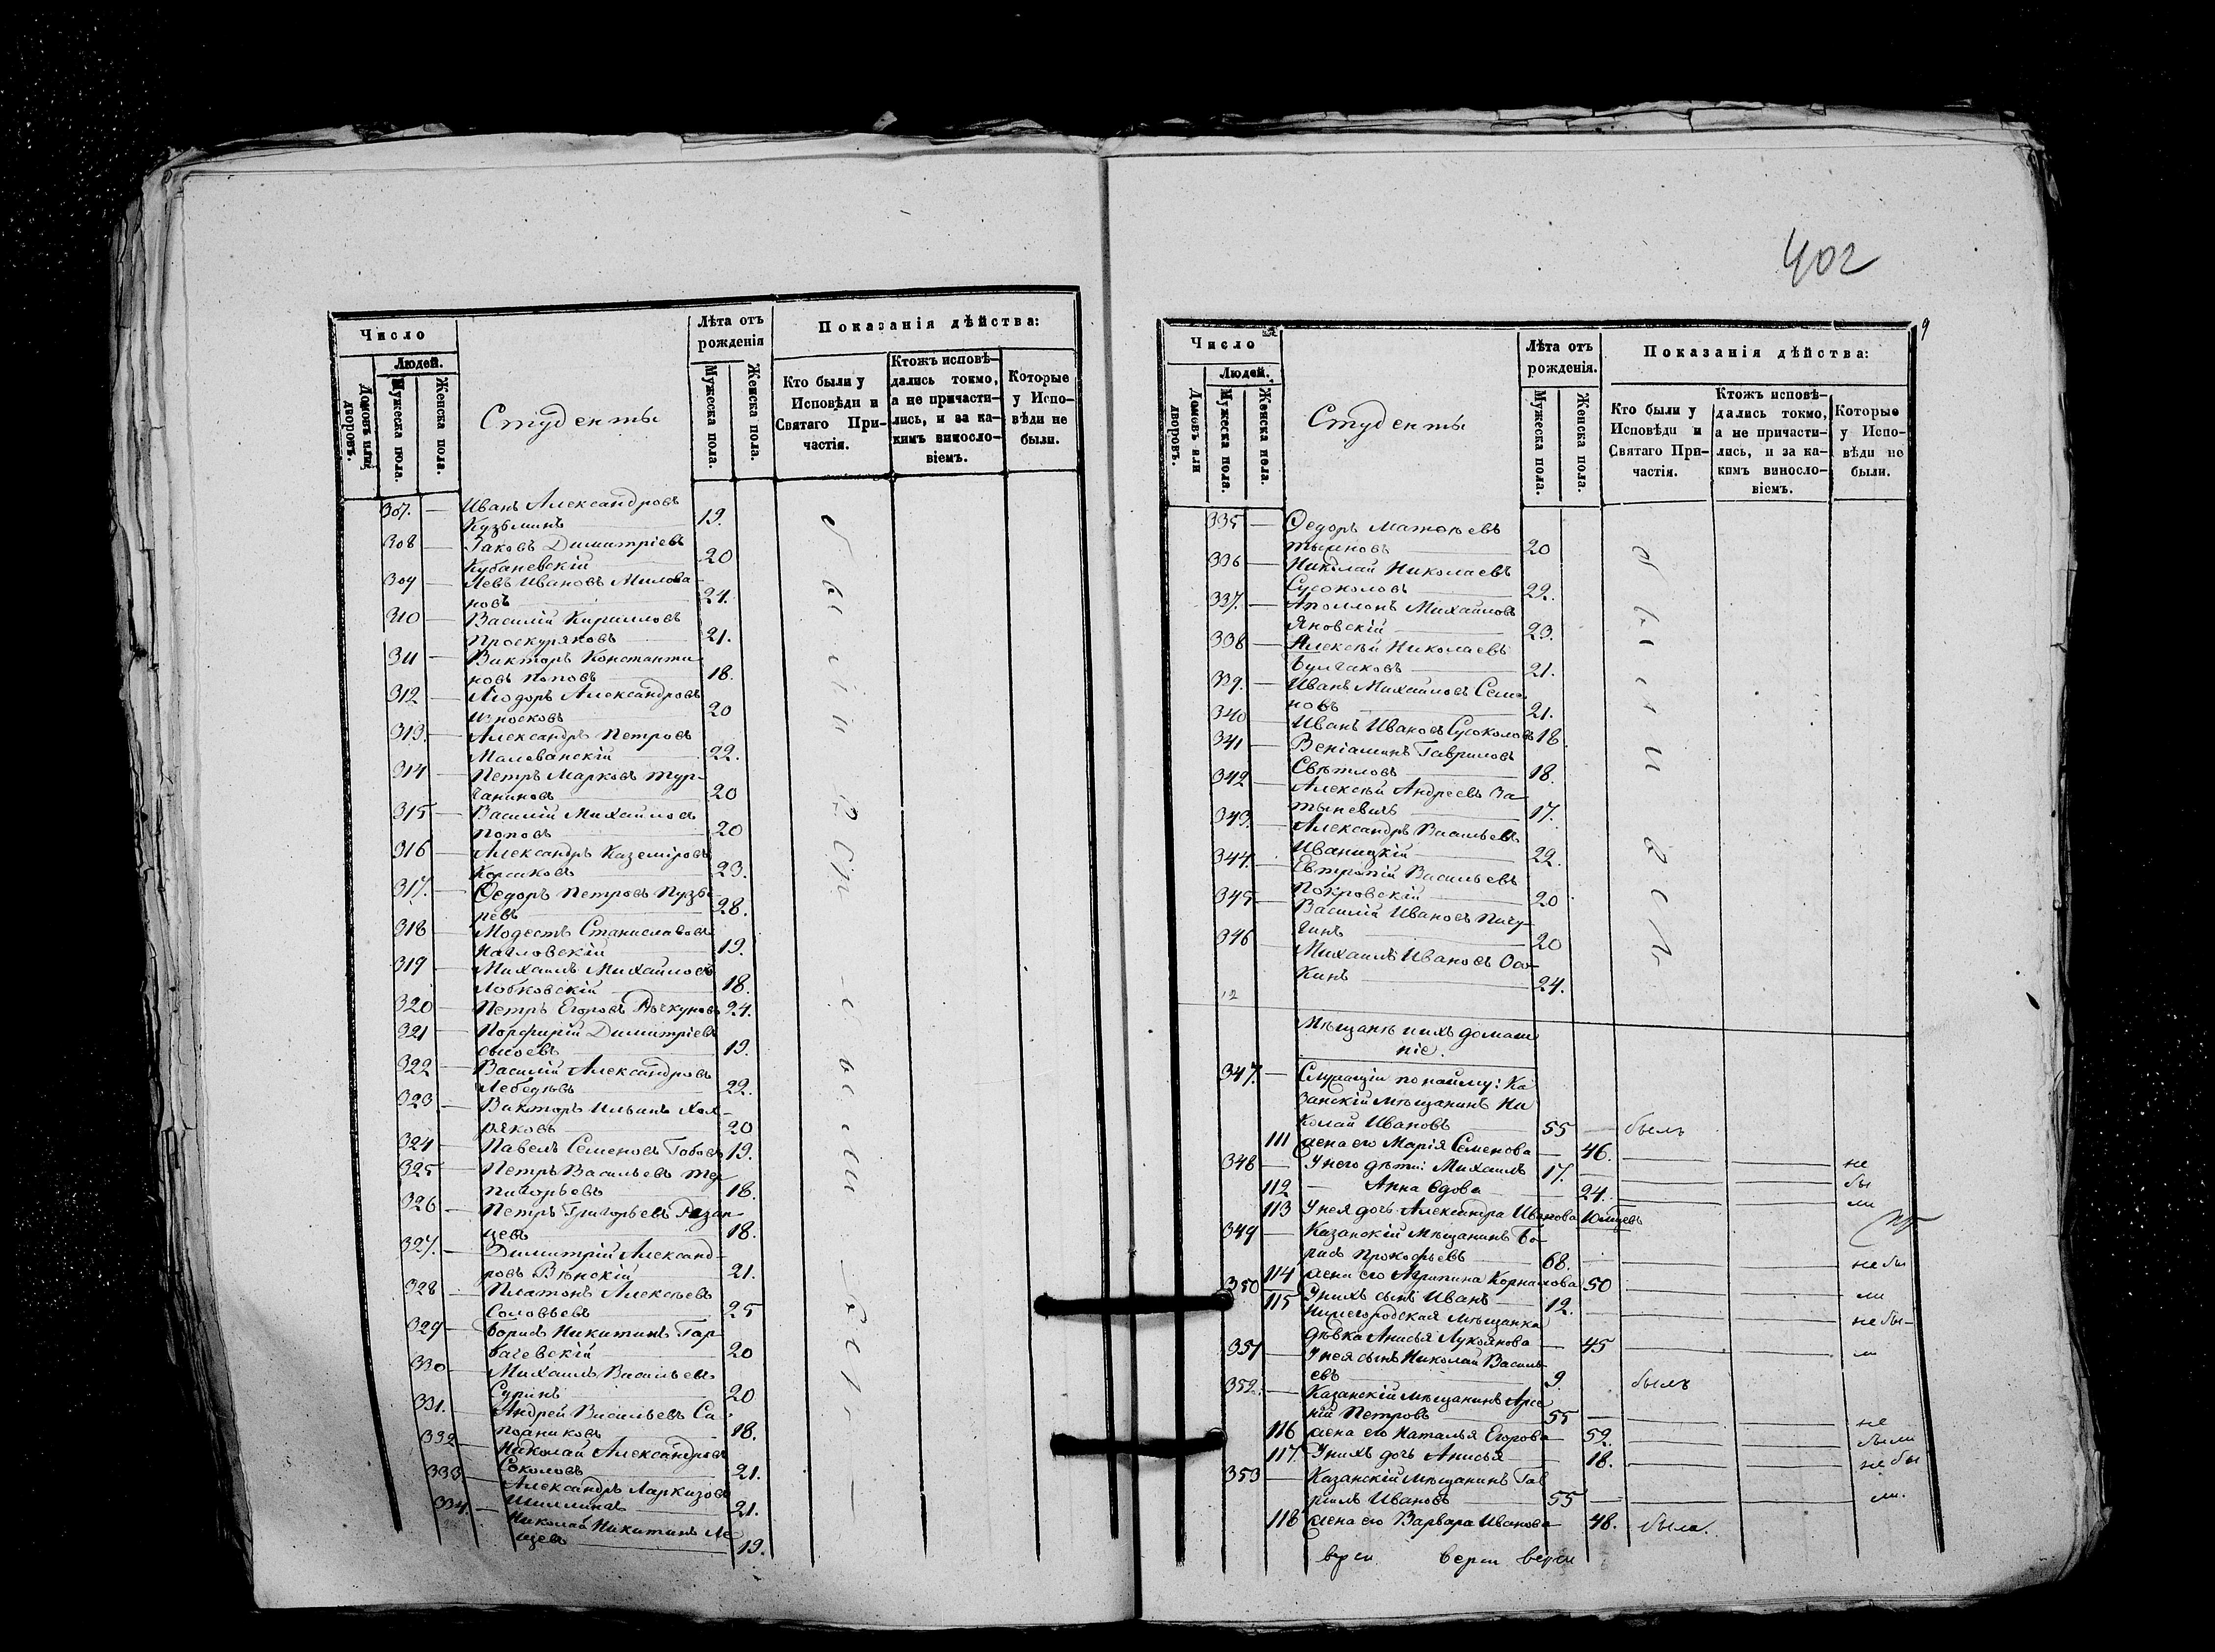 Число
Людей.
Домовъ или дворовъ.
Мужеска пола.
Женска пола.
Студенты
Лѣта отъ рожденія
Мужеска пола.
Женска пола.
Показанія дѣйства:
Кто были у Исповѣди и Святаго Причастія.
Ктожъ исповѣдались токмо, а не причастились, и за какимъ винословіемъ.
Которые у Исповѣди не были.
307. — Иванъ Александровъ
Кузьминъ 19.
308 — Іаковъ Димитріевъ
Кубаневскій 20
309 — Левъ Ивановъ Милова-
новъ 24.
310 — Василій Кирилловъ
Проскуряковъ 21.
311 — Викторъ Константи-
новъ Поповъ 18.
312 — Ліодоръ Александровъ
Износковъ 20
313. — Александръ Петровъ
Малеванскій 22.
314 — Петръ Марковъ Тур-
чаниновъ 20
315 — Василій Михайловъ
Поповъ 20
316 — Александръ Каземіровъ
Корсаковъ 23.
317. — Ѳедоръ Петровъ Пузы-
ревъ 28.
318 — Модестъ Станиславовъ
19.
319 — Михаилъ Михайловъ
Лобковскій 18.
320 — Петръ Егоровъ 24.
321 — Порфирій Димитріевъ
19.
322 — Василій Александровъ
Лебедевъ 22.
323 — Викторъ Ильинъ Хох-
ряковъ 20
324 — Павелъ Семеновъ 19.
325 — Петръ Васильевъ Тер-
пигорьевъ 18.
326 — Петръ Григорьевъ Рязан-
цевъ 18.
327. — Димитрій Александ-
ровъ Вѣнскій 21.
328 — Платонъ Алексѣевъ
Соловьевъ 25
329 — Борисъ Никитинъ Гор-
бачевскій 20
330 — Михаилъ Васильевъ
Суринъ 20
331. — Андрей Васильевъ Са-
пожниковъ 18.
332 — Николай Александровъ
Соколовъ 21.
333 — Александръ
21.
334. — Николай Никитинъ
19.
402
9
Число
Людей.
Домовъ или дворовъ.
Мужеска пола.
Женска пола.
Студенты
Лѣта отъ рожденія.
Мужеска пола.
Женска пола.
Показанія дѣйства:
Кто были у Исповѣди и Святаго Причастія.
Ктожъ исповѣдались токмо, а не причастились, и за какимъ винословіемъ.
Которые у Исповѣди не были.
335 — Ѳедоръ Матѳѣевъ
20
336 — Николай Николаевъ
Сусоколовъ 22.
337. — Аполлонъ Михайловъ
Яновскій 23.
338 — Алексѣй Николаевъ
Булгаковъ 21.
339. — Иванъ Михайловъ Семе-
новъ 21.
340 — Иванъ Ивановъ Сусоколовъ 18.
341 — Веніаминъ Гавриловъ
Свѣтловъ 18.
342 — Алексѣй Андреевъ За-
17.
343. — Александръ Васильевъ
Иваницкій 22.
344. — Евтропій Васильевъ
Покровскій 20
345 — Василій Ивановъ Пичу-
гинъ 20
346 — Михаилъ Ивановъ Осо-
кинъ 24.
12
были
Мѣщане и ихъ домаш-
ніе.
347. — Служащіи по найму: Ка-
занскій мѣщанинъ Ни-
колай Ивановъ 55 — былъ
111 жена его Марія Семенова — 46.
348 — У него дѣти: Михаилъ 17. — не
112 — Анна вдова 24. бы
113 У нея дочь Александра Иванова 10 ли
349 — Казанскій мѣщанинъ Бо-
рисъ Прокофьевъ 68. не бы
114 жена его Агрипина Корнилова 50
350 — У нихъ сынъ Иванъ 12. ли
115 Нижегородская мѣщанка
дѣвка Анисья Лукоянова — 45 не бы-
351 — У нея сынъ Николай Василь-
евъ 9. былъ
352. — Казанскій мѣщанинъ Арсе-
ній Петровъ 55 — не
116 жена его Наталья Егорова 52. были
117. У нихъ дочь Анисья 18. не бы
353 — Казанскій мѣщанинъ Гав-
рилъ Ивановъ 55 ли.
118 жена его Варвара Иванова 48. была.